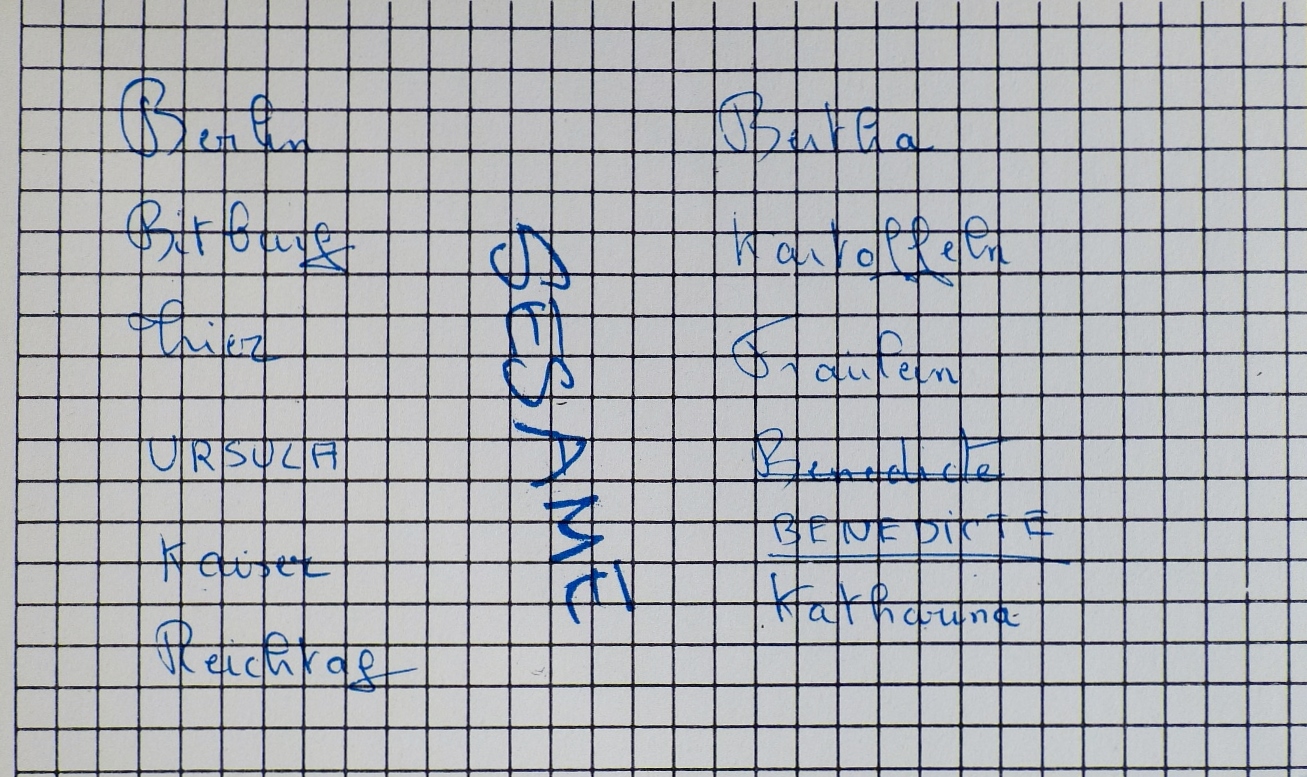 Berlin
Bitburg
Trier
URSULA
Kaiser
Reichtag
SESAME
Bertha
Kartoffeln
Fraulein
Benedicte
BENEDICTE
Katharina